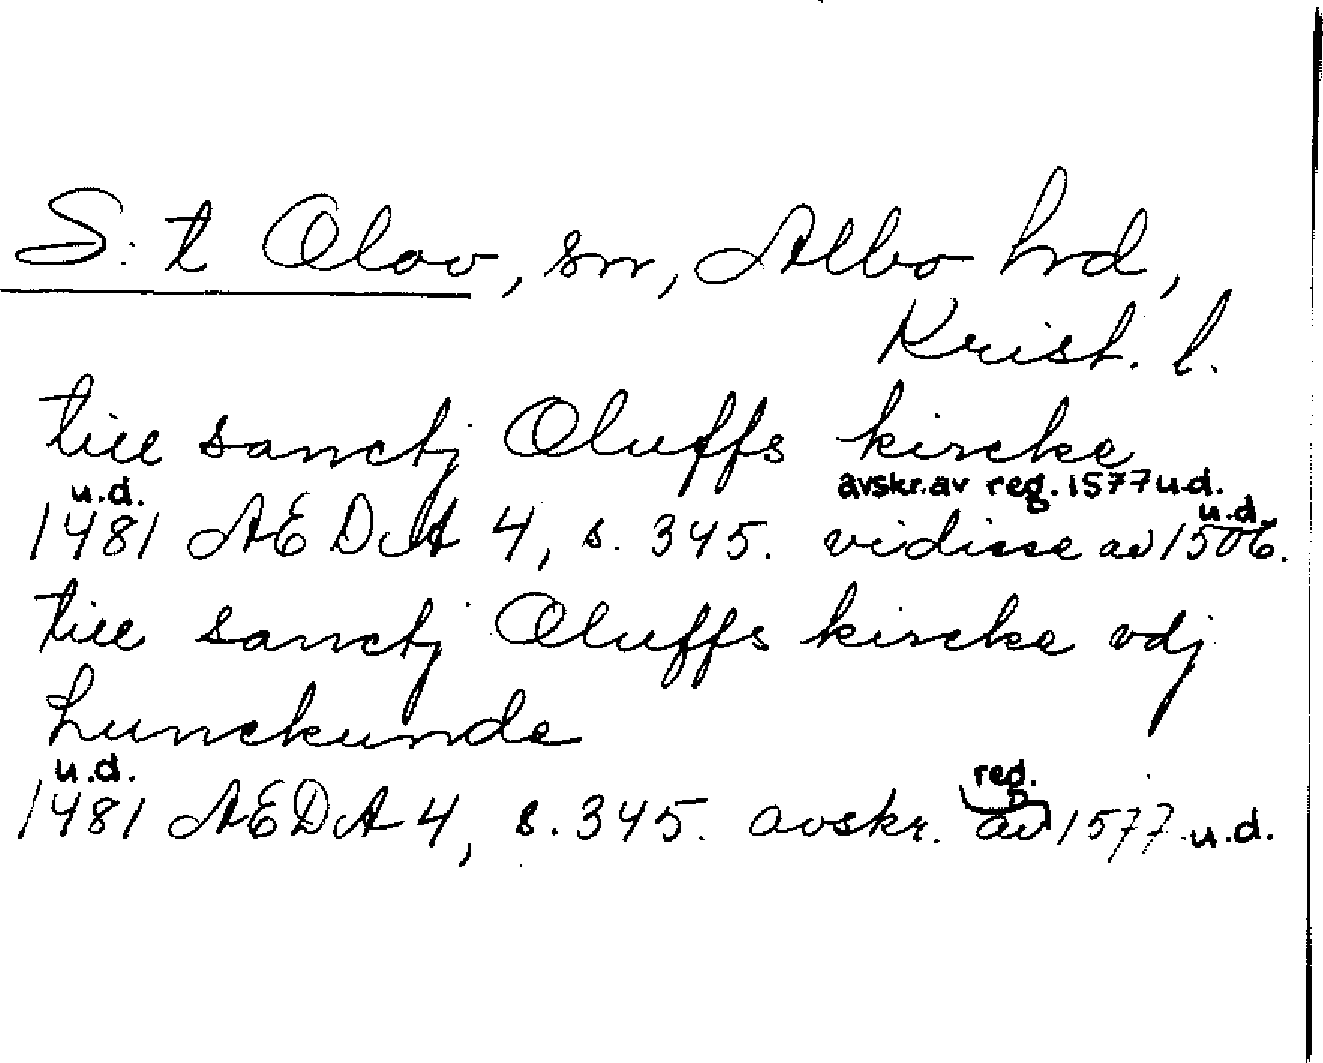 S:t Olov, sn, Albo hrd,
Krist. l.
till sanctj Oluffs kircke
u.d. avskr. av reg. 1577 u.d.
1481 ÆDA 4, s. 345. vidisse av 1506. u.d.
till sanctj Oluffs kircke vdj
hunckunde
u.d. reg.
1481 ÆDA 4, s. 345. avskr. av 1577 u.d.